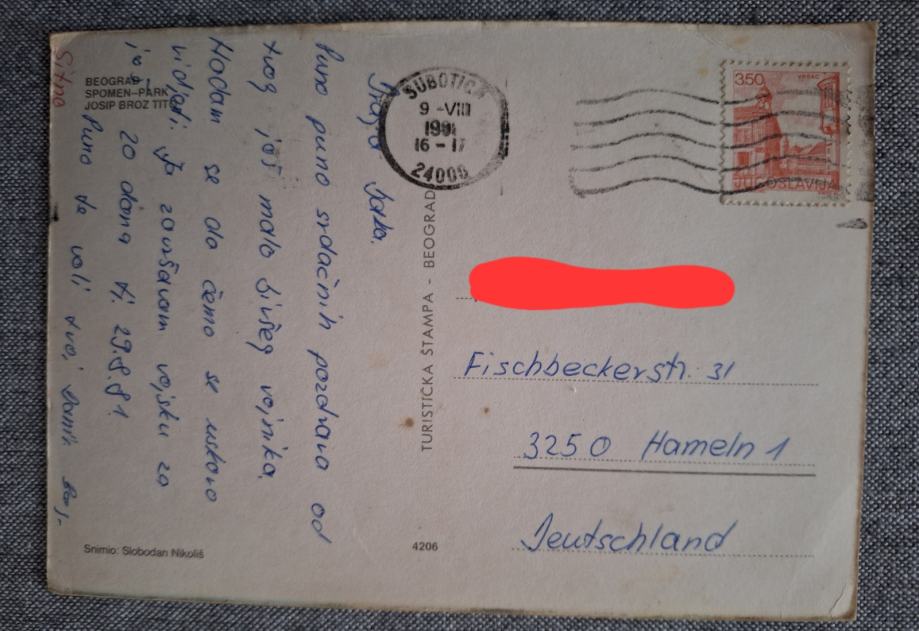 BEOGRAD
SPOMEN-PARK
JOSIP BROZ TITO
Draga
Puno puno srdačnih pozdrava od
tvog još malo bivšeg vojnika.
Nadam se da ćemo se uskoro
vidjeti. Ja završavam vojsku za
20 dana tj. 29.8.81
Puno te voli tvoj
Sitno
Snimio: Slobodan Nikoliš
TURISTIČKA ŠTAMPA - BEOGRAD
4206
SUBOTICA
9-VIII
16-17
24000
350
VRŠAC
JUGOSLAVIJA
Fischbeckerstr. 31
3250 Hameln 1
Deutschland